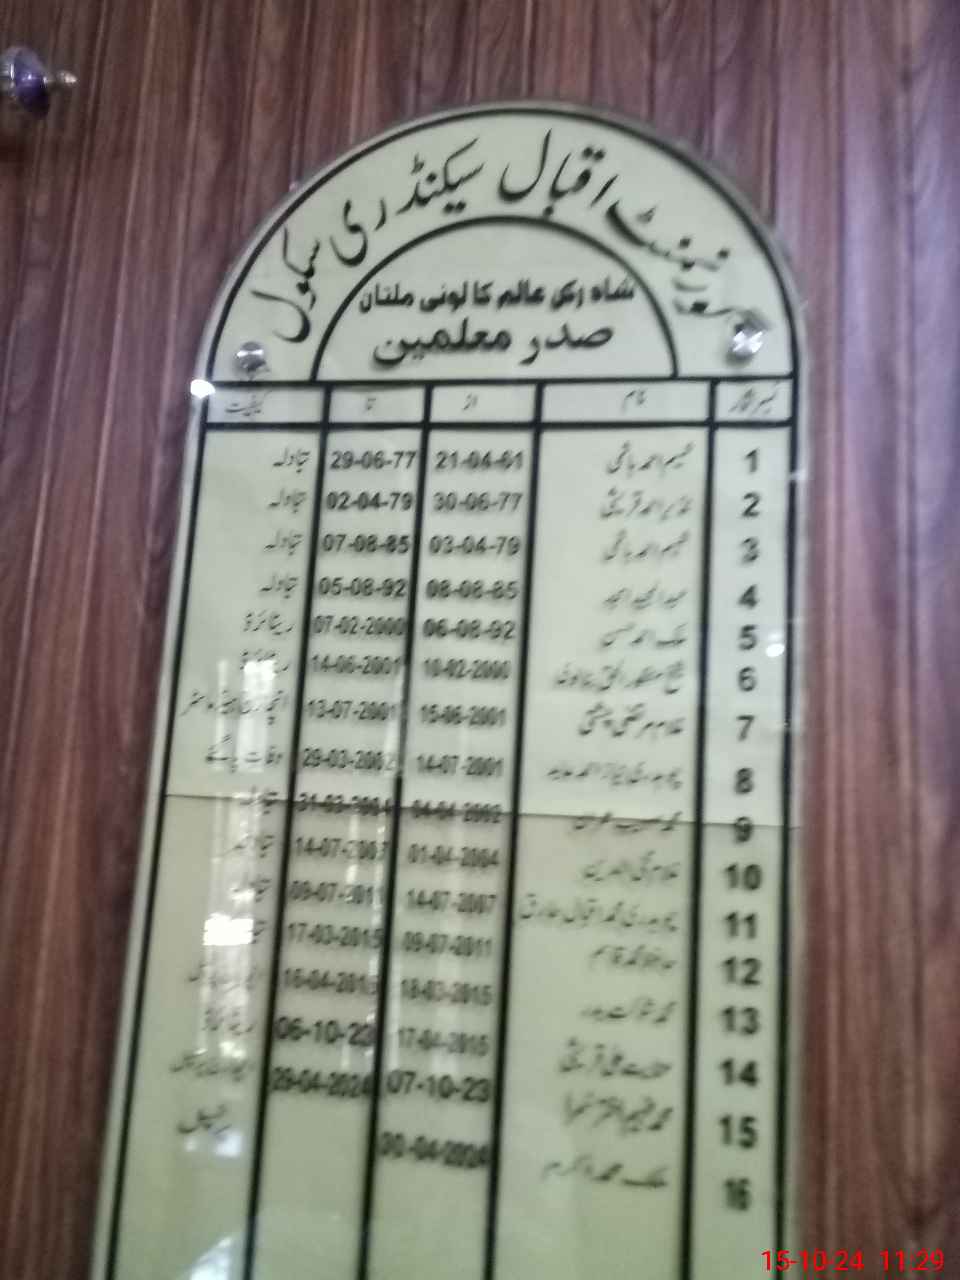 گورنمنٹ اقبال سیکنڈری سکول
شاہ رکن عالم کالونی ملتان
صدر معلمین
نمبر شمار نام از تا کیفیت
1 شمیم احمد ہاشمی 21-04-61 29-06-77 تبادلہ
2 نذیر احمد قریشی 30-06-77 02-04-79 تبادلہ
3 شمیم احمد ہاشمی 03-04-79 07-08-85 تبادلہ
4 عبدالمجید امجد 08-08-85 05-08-92 تبادلہ
5 ملک احمد حسن 06-08-92 07-02-2000 ریٹائرڈ
6 شیخ منظور الحق 10-02-2000 14-06-2001 ریٹائرڈ
7 غلام مرتضی چشتی 15-06-2001 13-07-2001 انچارج ہیڈ ماسٹر
8 چوہدری نیاز احمد 14-07-2001 29-03-2002 وفات پا گئے
9 محمد 04-04-2002 31-03-2004 تبادلہ
10 غلام محی الدین 01-04-2004 14-07-2007 تبادلہ
11 چوہدری محمد اقبال طارق 14-07-2007 09-07-2011 تبادلہ
12 حافظ محمد قاسم 09-07-2011 17-03-2015
13 محمد شوکت 18-03-2015 16-04-2015
14 علی قریشی 17-04-2015 06-10-23 ریٹائرڈ
15 محمد 07-10-23 29-04-2024
16 ملک محمد اکرم 30-04-2024 پرنسپل
15-10-24 11:29